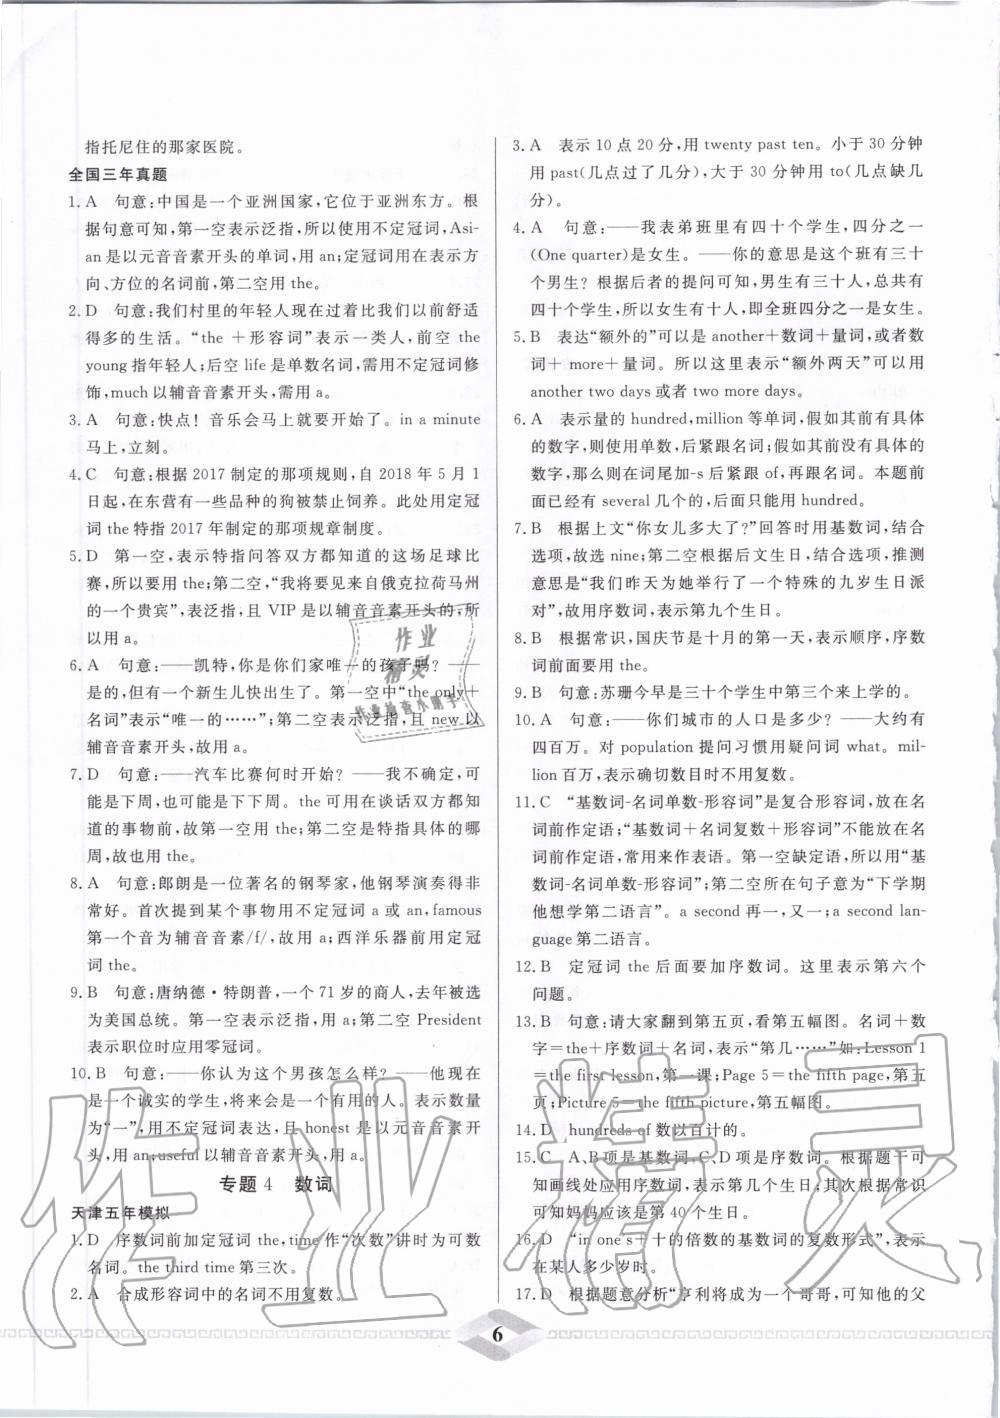 指托尼住的那家医院。
全国三年真题
1. A　句意:中国是一个亚洲国家,它位于亚洲东方。根
据句意可知,第一空表示泛指,所以使用不定冠词,Asi-
an是以元音音素开头的单词,用an;定冠词用在表示方
向、方位的名词前,第二空用the。
2. D　句意:我们村里的年轻人现在过着比我们以前舒适
得多的生活。“the ＋形容词”表示一类人,前空the
young指年轻人;后空life是单数名词,需用不定冠词修
饰,much以辅音音素开头,需用a。
3. A　句意:快点！音乐会马上就要开始了。in a minute
马上,立刻。
4. C　句意:根据2017制定的那项规则,自2018年5月1
日起,在东营有一些品种的狗被禁止饲养。此处用定冠
词the特指2017年制定的那项规章制度。
5. D　第一空,表示特指问答双方都知道的这场足球比
赛,所以要用the;第二空,“我将要见来自俄克拉荷马州
的一个贵宾”,表泛指,且VIP是以辅音音素开头的,所
以用a。
6. A　句意:——凯特,你是你们家唯一的孩子吗？——
是的,但有一个新生儿快出生了。第一空中“the only＋
名词”表示“唯一的……”;第二空表示泛指,且new以
辅音音素开头,故用a。
7. D　句意:——汽车比赛何时开始？——我不确定,可
能是下周,也可能是下下周。the可用在谈话双方都知
道的事物前,故第一空用the;第二空是特指具体的哪
周,故也用the。
8. A　句意:郎朗是一位著名的钢琴家,他钢琴演奏得非
常好。首次提到某个事物用不定冠词a或an,famous
第一个音为辅音音素/f/,故用a;西洋乐器前用定冠
词the。
9. B　句意:唐纳德·特朗普,一个71岁的商人,去年被选
为美国总统。第一空表示泛指,用a;第二空President
表示职位时应用零冠词。
10. B　句意:——你认为这个男孩怎么样？——他现在
是一个诚实的学生,将来会是一个有用的人。表示数量
为“一”,用不定冠词表达,且honest是以元音音素开
头,用an;useful以辅音音素开头,用a。
专题4　数词
天津五年模拟
1. D　序数词前加定冠词the,time作“次数”讲时为可数
名词。the third time第三次。
2. A　合成形容词中的名词不用复数。
3. A　表示10点20分,用twenty past ten。小于30分钟
用past(几点过了几分),大于30分钟用to(几点缺几
分)。
4. A　句意:——我表弟班里有四十个学生,四分之一
(One quarter)是女生。——你的意思是这个班有三十
个男生？根据后者的提问可知,男生有三十人,总共有
四十个学生,所以女生有十人,即全班四分之一是女生。
5. B　表达“额外的”可以是another＋数词＋量词,或者数
词＋more＋量词。所以这里表示“额外两天”可以用
another two days或者two more days。
6. A　表示量的hundred,million等单词,假如其前有具体
的数字,则使用单数,后紧跟名词;假如其前没有具体的
数字,那么则在词尾加-s后紧跟of,再跟名词。本题前
面已经有several几个的,后面只能用hundred。
7. B　根据上文“你女儿多大了?”回答时用基数词,结合
选项,故选nine;第二空根据后文生日,结合选项,推测
意思是“我们昨天为她举行了一个特殊的九岁生日派
对”,故用序数词,表示第九个生日。
8. B　根据常识,国庆节是十月的第一天,表示顺序,序数
词前面要用the。
9. B　句意:苏珊今早是三十个学生中第三个来上学的。
10. A　句意:——你们城市的人口是多少？——大约有
四百万。对population提问习惯用疑问词what。mil-
lion百万,表示确切数目时不用复数。
11. C　“基数词-名词单数-形容词”是复合形容词,放在名
词前作定语;“基数词＋名词复数＋形容词”不能放在名
词前作定语,常用来作表语。第一空缺定语,所以用“基
数词-名词单数-形容词”;第二空所在句子意为“下学期
他想学第二语言”。a second再一,又一;a second lan-
guage第二语言。
12. B　定冠词the后面要加序数词。这里表示第六个
问题。
13. B　句意:请大家翻到第五页,看第五幅图。名词＋数
字＝the＋序数词＋名词,表示“第几……”如:Lesson 1
＝the first lesson,第一课;Page 5＝the fifth page,第五
页;Picture 5＝the fifth picture,第五幅图。
14. D　hundreds of数以百计的。
15. C　A、B项是基数词,C、D项是序数词。根据题干可
知画线处应用序数词,表示第几个生日,其次根据常识
可知妈妈应该是第40个生日。
16. D　“in one's＋十的倍数的基数词的复数形式”,表示
在某人多少岁时。
17. D　根据题意分析“亨利将成为一个哥哥,可知他的父
6
作业
精灵
作业检查小助手
作业精灵